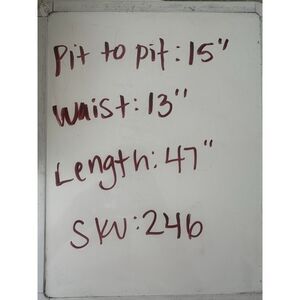 Pit to pit: 15"
Waist: 13"
Length: 47"
SKU: 246